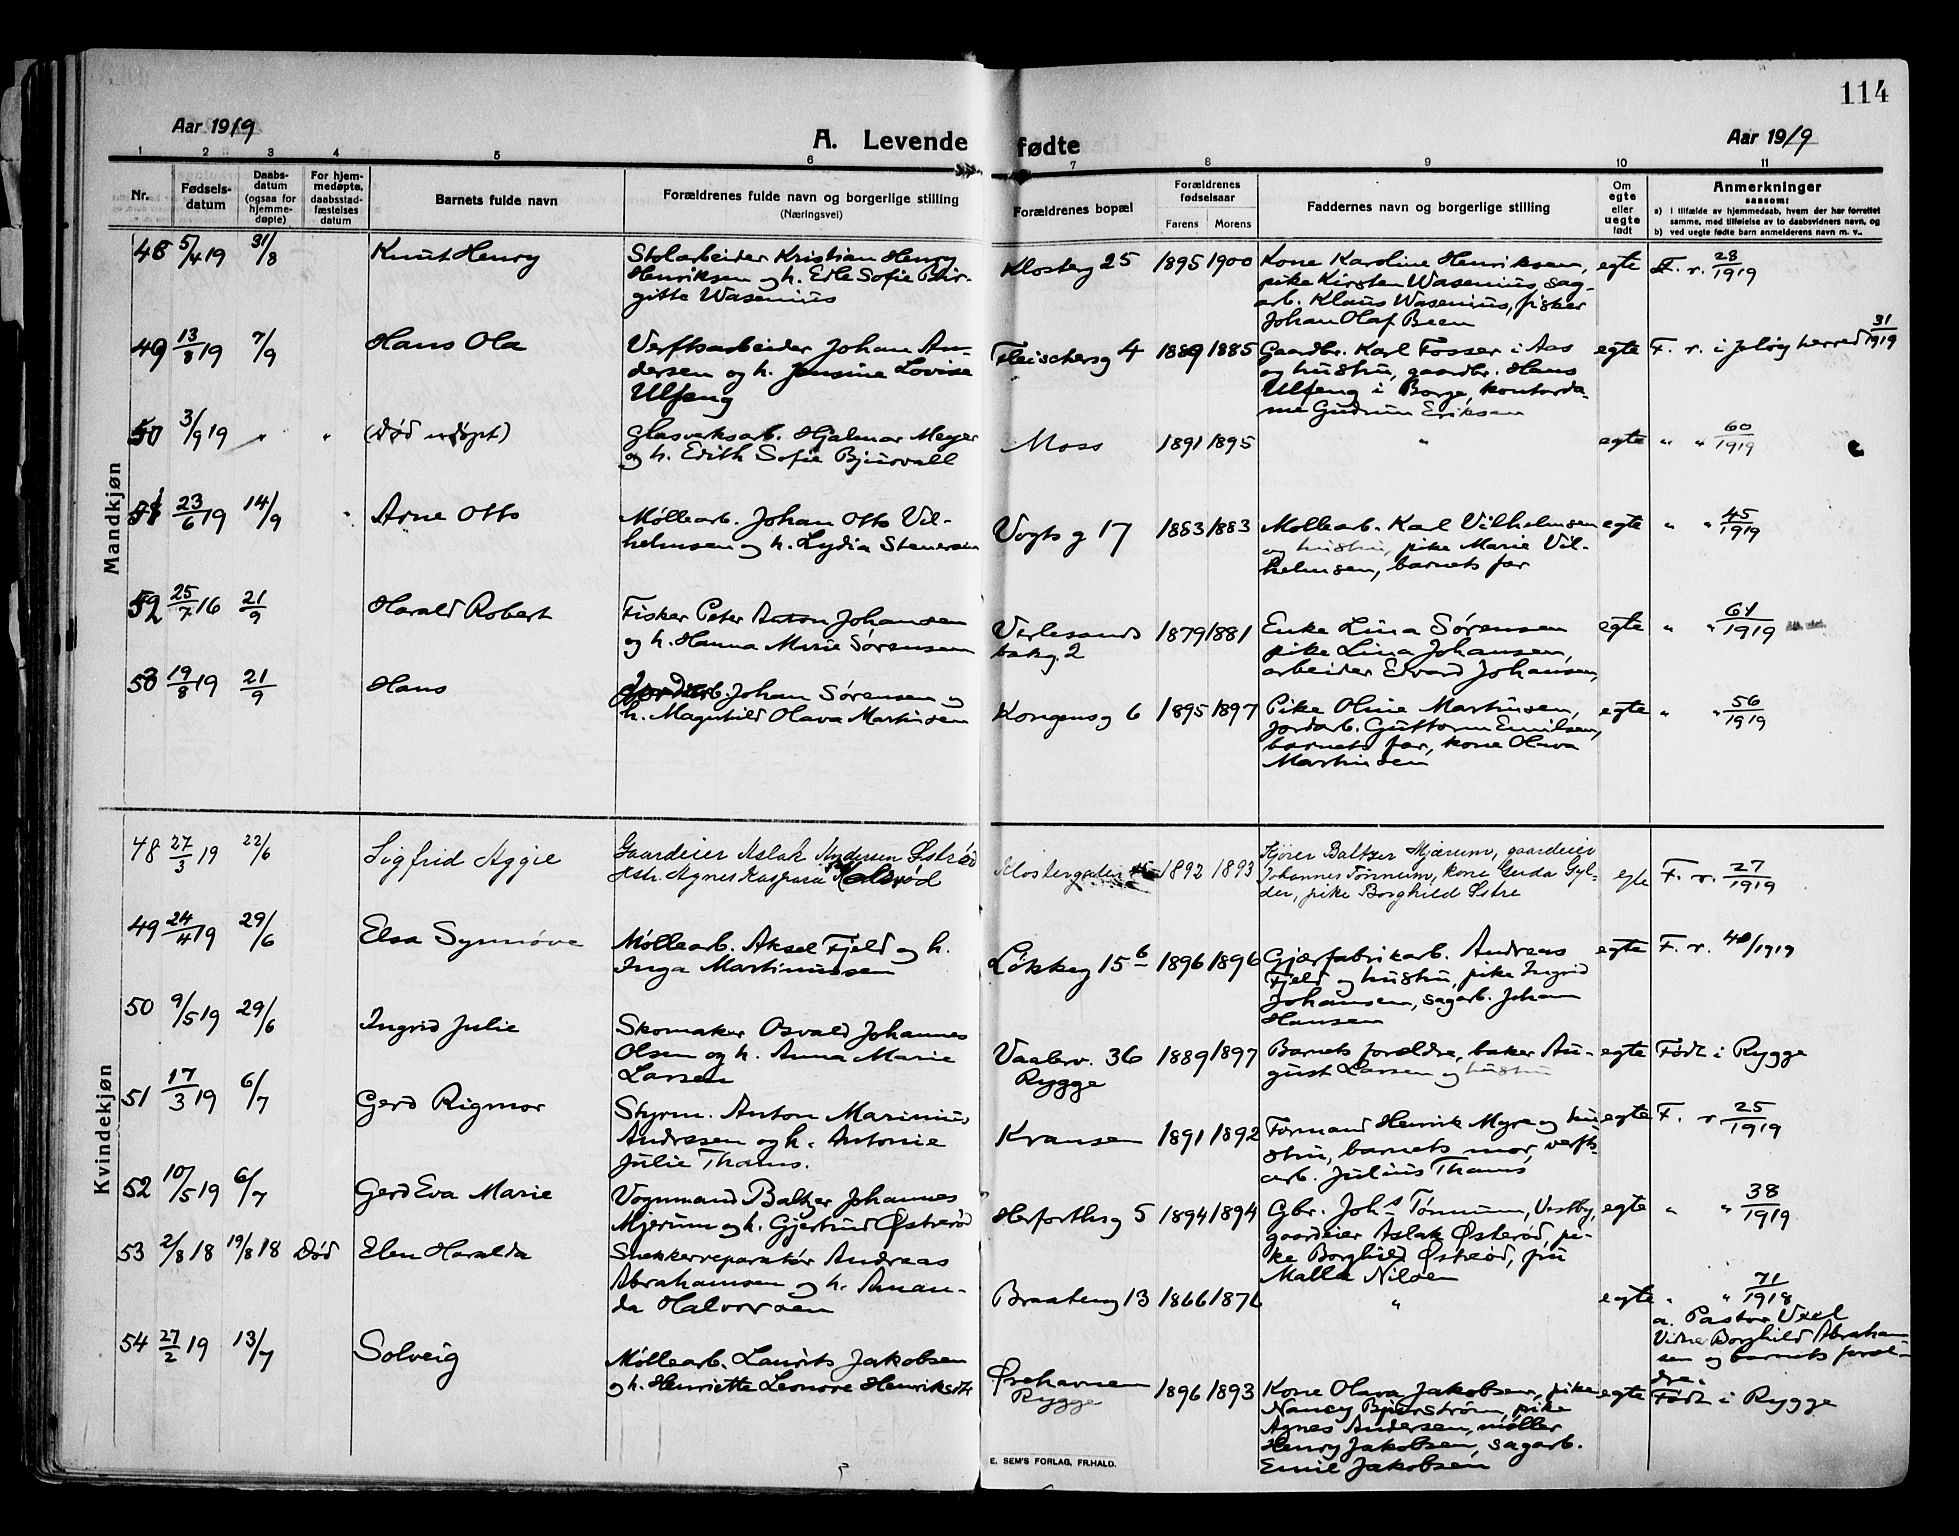 114
Aar 1919
A. Levende fødte
Aar 1919
1 2 3 4 5 6 7 8 9 10 11
Nr.
Fødsels-
datum
Daabs-
datum
(ogsaa for
hjemme-
døpte)
For hjem-
medøpte,
daabsstad-
fæstelses
datum
Barnets fulde navn
Forældrenes fulde navn og borgerlige stilling
(Næringsvei)
Forældrenes bopæl
Forældrenes
fødselsaar
Farens Morens
Faddernes navn og borgerlige stilling
Om
egte
eller
uegte
født
Anmerkninger
saasom:
a) i tilfælde av hjemmedaab, hvem der har forrettet
samme, med tilføielse av to daabsvidners navn, og
b) ved uegte fødte barn anmelderens navn m. v..
Mandkjøn
48 5/4 19 31/8 Knut Henry
Stolarbeider Kristian Henry
Henriksen og h. Edle Sofie Bir-
gitte Wasenius
Klosterg 25 1895 1900
Kone Karoline Henriksen,
pike Kirsten Wasenius, sag-
arb. Klaus Wasenius, fisker
Johan Olaf Been
egte F. r. 28/1919
49 13/8 19 7/9 Hans Ola
Verftsarbeider Johan An-
dersen og h. Jensine Lovise
Ulfeng
Fleischersg 4 1889 1885
Gaardbr. Karl Fosser i Aas
og hustru, gaardbr. Hans
Ulfeng i Borge, kontorda-
me Gudrun Eriksen
egte F. r. i Jeløy herred 31/1919
50 3/9 19 " " (Død udøpt)
Glasverksarb. Hjalmar Meyer
og h. Edith Sofie Bjurvall
Moss 1891 1895 " egte " " 60/1919
51 23/6 19 14/9 " Arne Otto
Møllearb. Johan Otto Vil-
helmsen og h. Lydia Stenersen
Vogts g 17 1883 1883
Møllearb. Karl Vilhelmsen
og hustru, pike Marie Vil-
helmsen, barnets far
egte " " 45/1919
52 25/7 16 21/9 Harald Robert
Fisker Peter Anton Johansen
og h. Hanna Marie Sørensen
Verlesands
bakg. 2 1879 1881
Enke Lina Sørensen
pike Lina Johansen,
arbeider Edvard Johansen,
egte " " 61/1919
53 19/8 19 21/9 Hans
Jordarb. Johan Sørensen og
h. Magnhild Olava Martinsen
Kongens g 6 1895 1897
Pike Oline Martinsen,
jordarb. Guttorm Emilsen,
barnets far, kone Olava
Martinsen
egte " " 56/1919
Kvindekjøn
48 27/3 19 22/6 Sigfrid Aggie
Gaardeier Aslak Andersen Østrød
Hstr. Agnes Kaspara
Klostergaten 1892 1893
Kjører Baltzer Mjærum, gaardeier
Johannes Tønnum, kone Gerda Gyl-
der, pike Borghild Østre
egte F. r. 27/1919
49 24/4 19 29/6 Elsa Synnøve
Møllearb. Aksel Fjeld og h.
Inga Martinussen
Løkkeg 15 b 1896 1896
Gjærfabrikarb. Andreas
Fjeld og hustru, pike Ingrid
Johansen, sagarb. Johan
Hansen
egte F. r. 40/1919
50 9/5 19 29/6 Ingrid Julie
Skomaker Osvald Johannes
Olsen og h. Anna Marie
Larsen
Vaalerv. 36
Rygge 1889 1897
Barnets forældre, baker Au-
gust Larsen og hustru
egte Født i Rygge
51 17/3 19 6/7 Gerd Rigmor
Styrm. Anton Marinius
Andresen og h. Antonie
Julie Thams.
Kransen 1891 1892
Formand Henrik Myre og hu-
stru, barnets mor, verfts-
arb. Julius Thams
egte F. r. 25/1919
52 10/5 19 6/7 Gerd Eva Marie
Vognmand Baltzer Johannes
Mjerum og h. Gjertrud Østerød
Herforths g 5 1894 1894
Gbr. Johs Tønnum, Vestby,
gaardeier Aslak Østerød, pi-
ke Borghild Østerød, fru
Malla Nilsen
egte " " 38/1919
53 2/8 18 19/8 18 Død Elen Haralda
Snekkerreparatør Andreas
Abrahamsen og h. Aman-
da Halvorsen
Braateng 13 1866 1876 " egte " " 71/1918
a. Pastor Veel
Vidne Borghild Abraham-
sen og barnets foræl-
dre.
54 27/2 19 13/7 Solveig
Møllearb. Laurits Jakobsen
og h. Henriette Leonore Henriksen
Ørehavnen
Rygge 1896 1893
Kone Olava Jakobsen, pike
Nancy Bjerstrøm, pike
Agnes Andersen, møller
Henry Jakobsen, sagarb.
Emil Jakobsen
egte Født i Rygge
E. SEM'S FORLAG, FR.HALD.